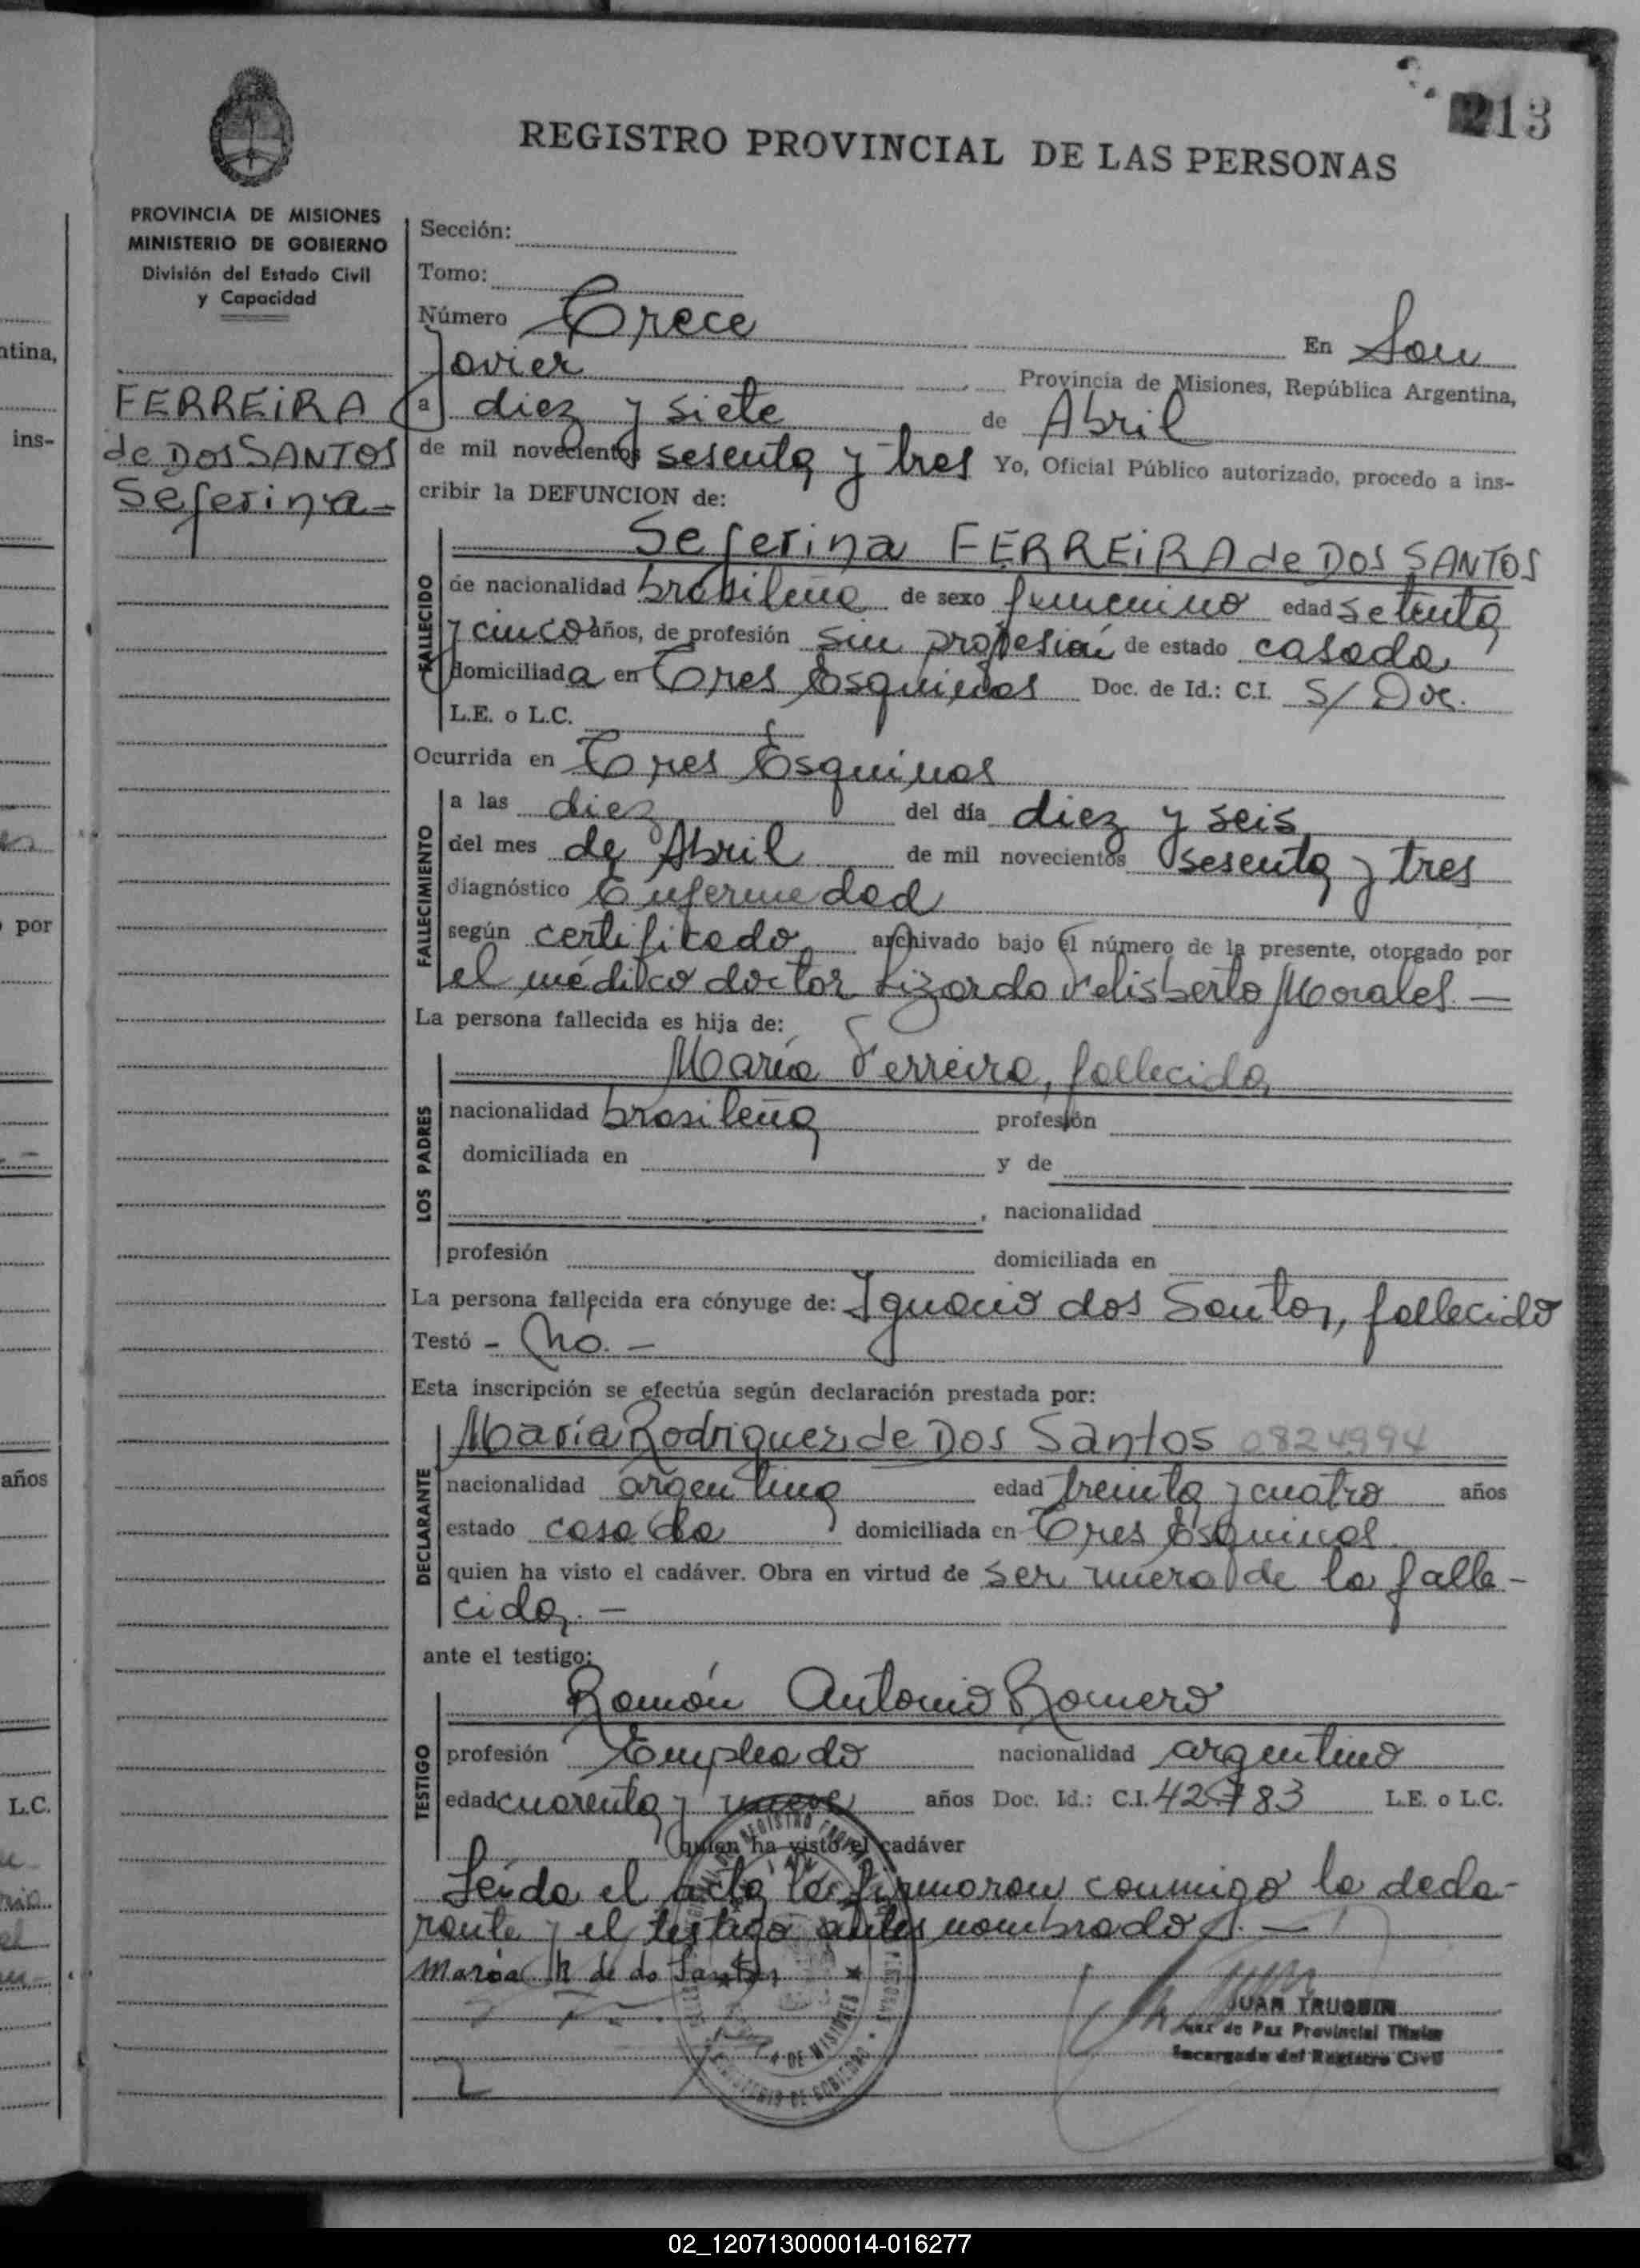 213
REGISTRO PROVINCIAL DE LAS PERSONAS
PROVINCIA DE MISIONES
MINISTERIO DE GOBIERNO
División del Estado Civil
y Capacidad
FERREIRA
de DOS SANTOS
Seferina-
Sección:
Tomo:
Número Trece En San
Javier Provincia de Misiones, República Argentina,
a diez y siete de Abril
de mil novecientos sesenta y tres Yo, Oficial Público autorizado, procedo a ins-
cribir la DEFUNCION de:
FALLECIDO
Seferina FERREIRA de DOS SANTOS
de nacionalidad brasileña de sexo femenino edad setenta
y cinco años, de profesión sin profesión de estado casada
domiciliada en Tres Esquinas Doc. de Id.: C.I. S/Doc.
L.E. o L.C.
Ocurrida en Tres Esquinas
FALLECIMIENTO
a las diez del día diez y seis
del mes de Abril de mil novecientos sesenta y tres
diagnóstico Enfermedad
según certificado archivado bajo el número de la presente, otorgado por
el médico doctor Lizardo Felisberto Morales. —
La persona fallecida es hija de:
LOS PADRES
María Ferreira, fallecida,
nacionalidad brasileña profesión
domiciliada en y de
, nacionalidad
profesión domiciliada en
La persona fallecida era cónyuge de: Ignacio dos Santos, fallecido
Testó - No. -
Esta inscripción se efectúa según declaración prestada por:
DECLARANTE
María Rodriguez de Dos Santos 0824994
nacionalidad argentina edad treinta y cuatro años
estado casada domiciliada en Tres Esquinas.
quien ha visto el cadáver. Obra en virtud de ser nuera de la falle-
cida. -
ante el testigo:
TESTIGO
Ramón Antonio Romero
profesión Empleado nacionalidad argentino
edad cuarenta y nueve años Doc. Id.: C.I. 42783 L.E. o L.C.
quien ha visto el cadáver
Leída el acta la firmaron conmigo la decla-
rante y el testigo antes nombrados. —
Maroa R de do Santos
JUAN TRUQUIN
Juez de Paz Provincial Titular
Encargado del Registro Civil
DE MISIONES
MINISTERIO DE GOBIERNO
ntina,
ins-
por
años
L.C.
02_120713000014-016277